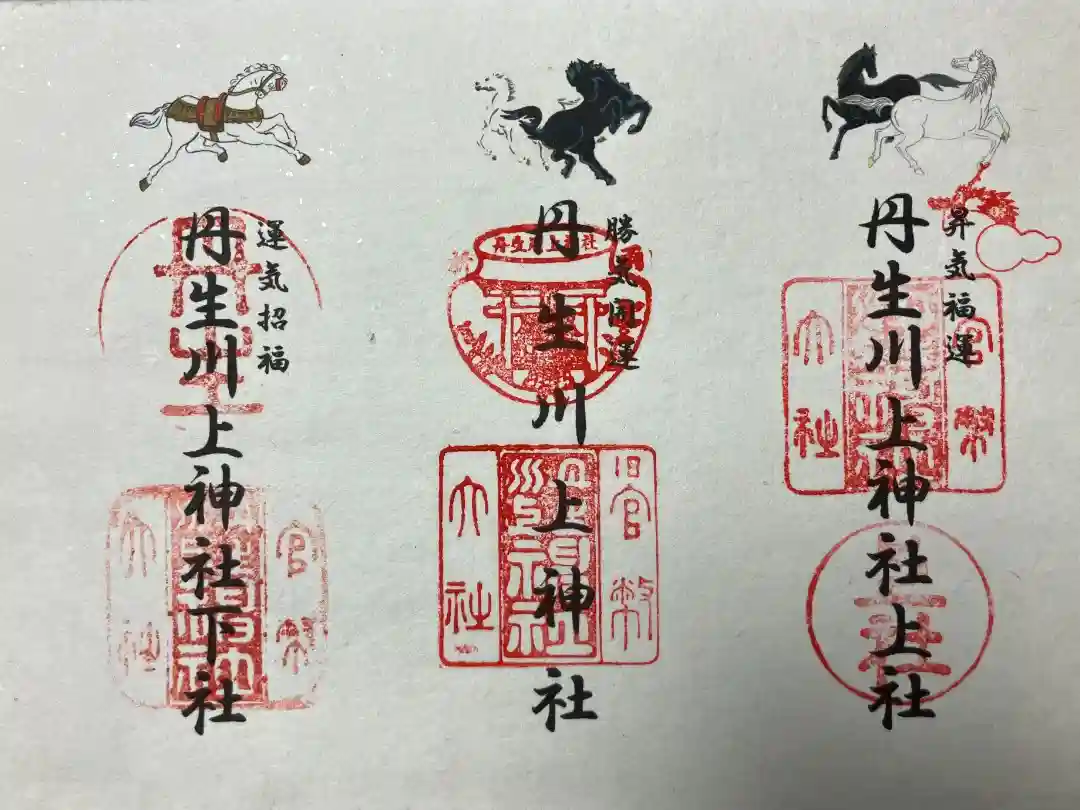 昇気福運
丹生川上神社上社
官幣
大社
上社
勝気開運
丹生川上神社
丹生川上神社
旧官幣
大社
運気招福
丹生川上神社下社
官幣
大社